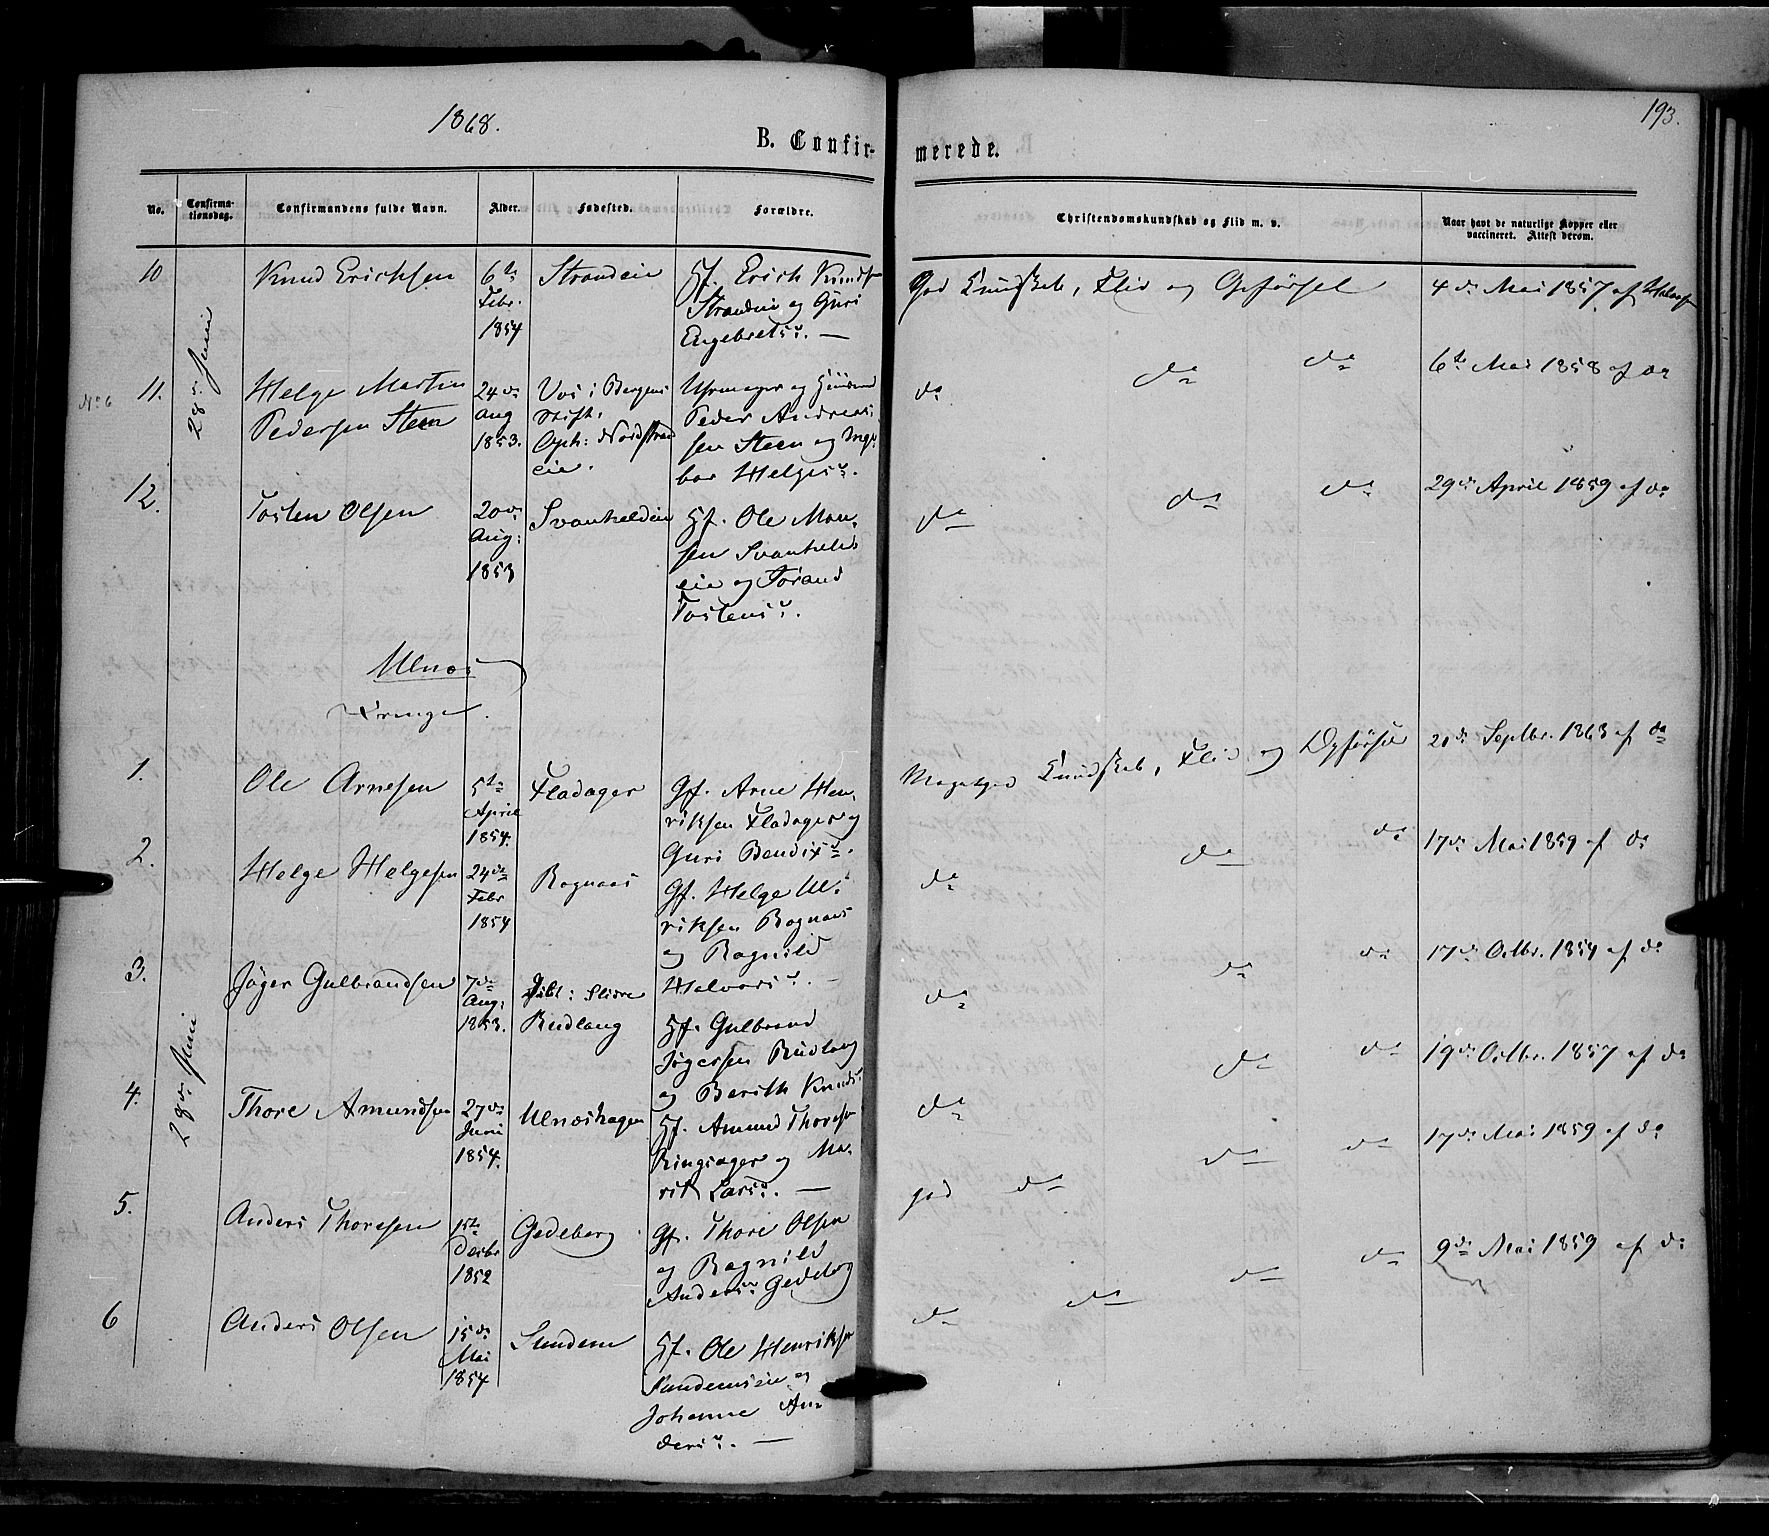 1868.
193.
B. Confir-
merede.
No.
Confirma-
tionsdag.
Confirmandens fulde Navn.
Alder.
Fødested.
Forældre.
Christendomskundskab og Flid m. v.
Naar havt de naturlige Kopper eller
vaccineret. Attest derom.
28de Juni
10
Knud Erichsen
6te
Febr.
1854
Strandeie
Hf. Erich Knuds
Strandeie og Guri
Engebretsd. —
God Kundskab, Flid og Opførsel
4de Mai 1857 af
No 6
11.
Helge Martin
Pedersen Steen
24de
Aug
1853.
Vos i Bergens
Stift.
Oph: Nordstrand
eie.
Urmager og Huusmd
Peder Andreas
sen Steen og Inge
bor Helgesd.
do
do
do
6te Mai 1858 af do
12.
Tosten Olsen
20de
Aug:
1853
Svanheldeie
Hf. Ole Mon-
sen Svanheld
eie og Torand
Tostensd.
do
do
do
29de April 1859 af do
Ulnæs
Drenge.
28de Juni
1.
Ole Arnesen
5te
April
1854.
Fladager
Gf. Arne Hen-
riksen Fladager og
Guri Bendixd.
Megetgod Kundskab, Flid og Opførsel
20de Septbr. 1863 af do
2.
Helge Helgesen
24de
Febr
1854
Bagnaas
Gf. Helge Ul-
riksen Bagnaas
og Ragnild
Halvorsd. —
do
do
do
17de Mai 1859 af do
3.
Jøger Gulbrandsen
7de
Aug:
1853.
Slidre
Rudlang
Hf. Gulbrand
Jøgersen Rudlang
og Berith Knudsd.
do
do
do
17de Octbr. 1854 af do
4.
Thore Amundsen
27de
Juni
1854.
Ulnæshagen
Hf. Amund Thoresen
Ringsager og Ma-
rit Larsd. —
do
do
do
19de Octbr. 1857 af do
5.
Anders Thoresen
1ste
Decbr
1852
Gedeberg
Gf. Thore Olsen
og Ragnild
Andersd. Gedeberg
god do
do
do
17de Mai 1859 af do
6
Anders Olsen
15de
Mai
1854
Sundem
Hf. Ole Henriksen
Sundemseie og
Johanne An-
dersd. —
do
do
do
do
9de Mai 1859 af do